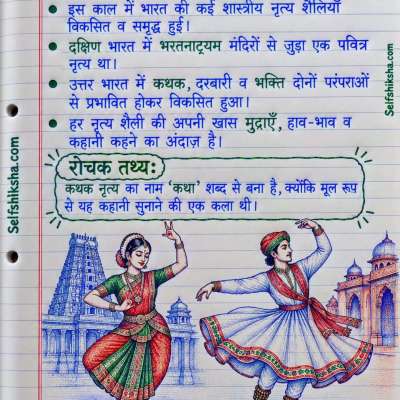 इस काल में भारत की कई शास्त्रीय नृत्य शैलियाँ
विकसित व समृद्ध हुईं।
दक्षिण भारत में भरतनाट्यम मंदिरों से जुड़ा एक पवित्र
नृत्य था।
उत्तर भारत में कथक, दरबारी व भक्ति दोनों परंपराओं
से प्रभावित होकर विकसित हुआ।
हर नृत्य शैली की अपनी खास मुद्राएँ, हाव-भाव व
कहानी कहने का अंदाज़ है।
रोचक तथ्य:
कथक नृत्य का नाम 'कथा' शब्द से बना है, क्योंकि मूल रूप
से यह कहानी सुनाने की एक कला थी।
Selfshiksha.com
Selfshiksha.com